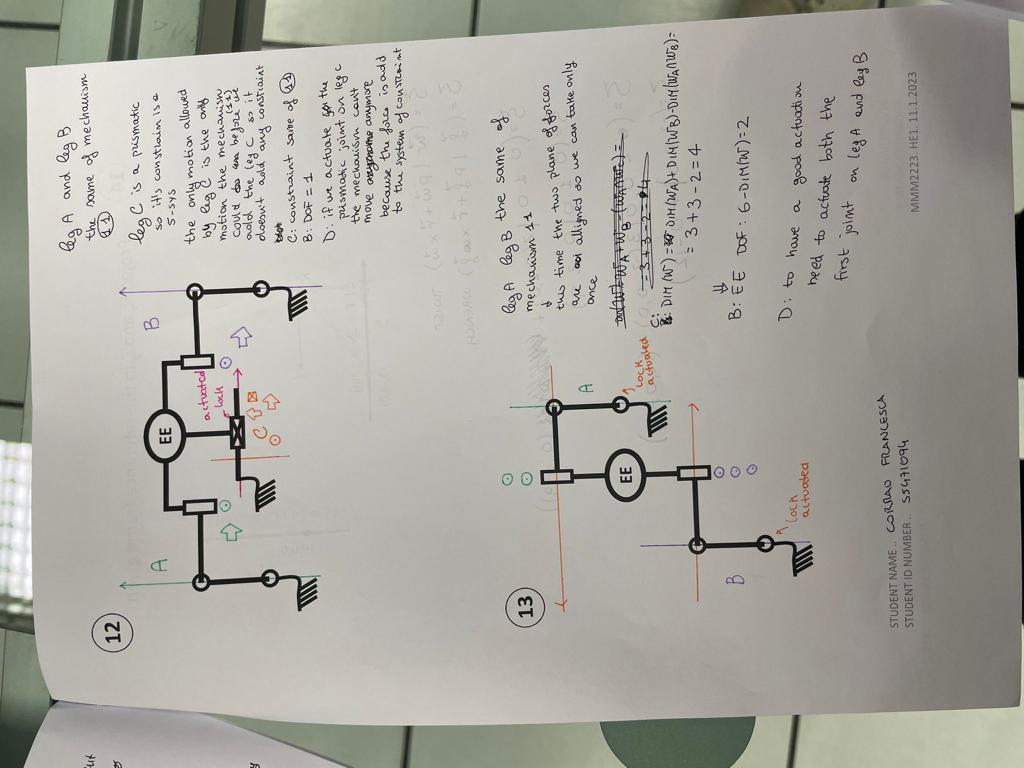 12
leg A and leg B
the same of mechanism
11
A
B
EE
actuated
lock
C
leg C is a prismatic
so it's constrain is a
5-sys
the only motion allowed
by leg C is the only
motion the mechanism
could before (11) we
add the leg C so it
doesn't add any constraint
C: constraint same of 11
B: DOF = 1
D: if we actuate the
prismatic joint on leg C
the mechanism can't
move anymore
because the force is add
to the system of constraint
13
leg A leg B the same of
mechanism 11
this time the two plane of forces
are alligned so we can take only
once
A
EE
Lock
actuated
B
Lock
actuated
C: DIM(W) = DIM(WA)+DIM(WB)-DIM(WA∩WB)=
= 3+3-2=4
B: EE DOF: 6-DIM(W)=2
D: to have a good actuation
need to actuate both the
first joint on leg A and leg B
STUDENT NAME.. CORRAO FRANCESCA
STUDENT ID NUMBER.. S5471094
MMM2223. HE1. 11.1.2023